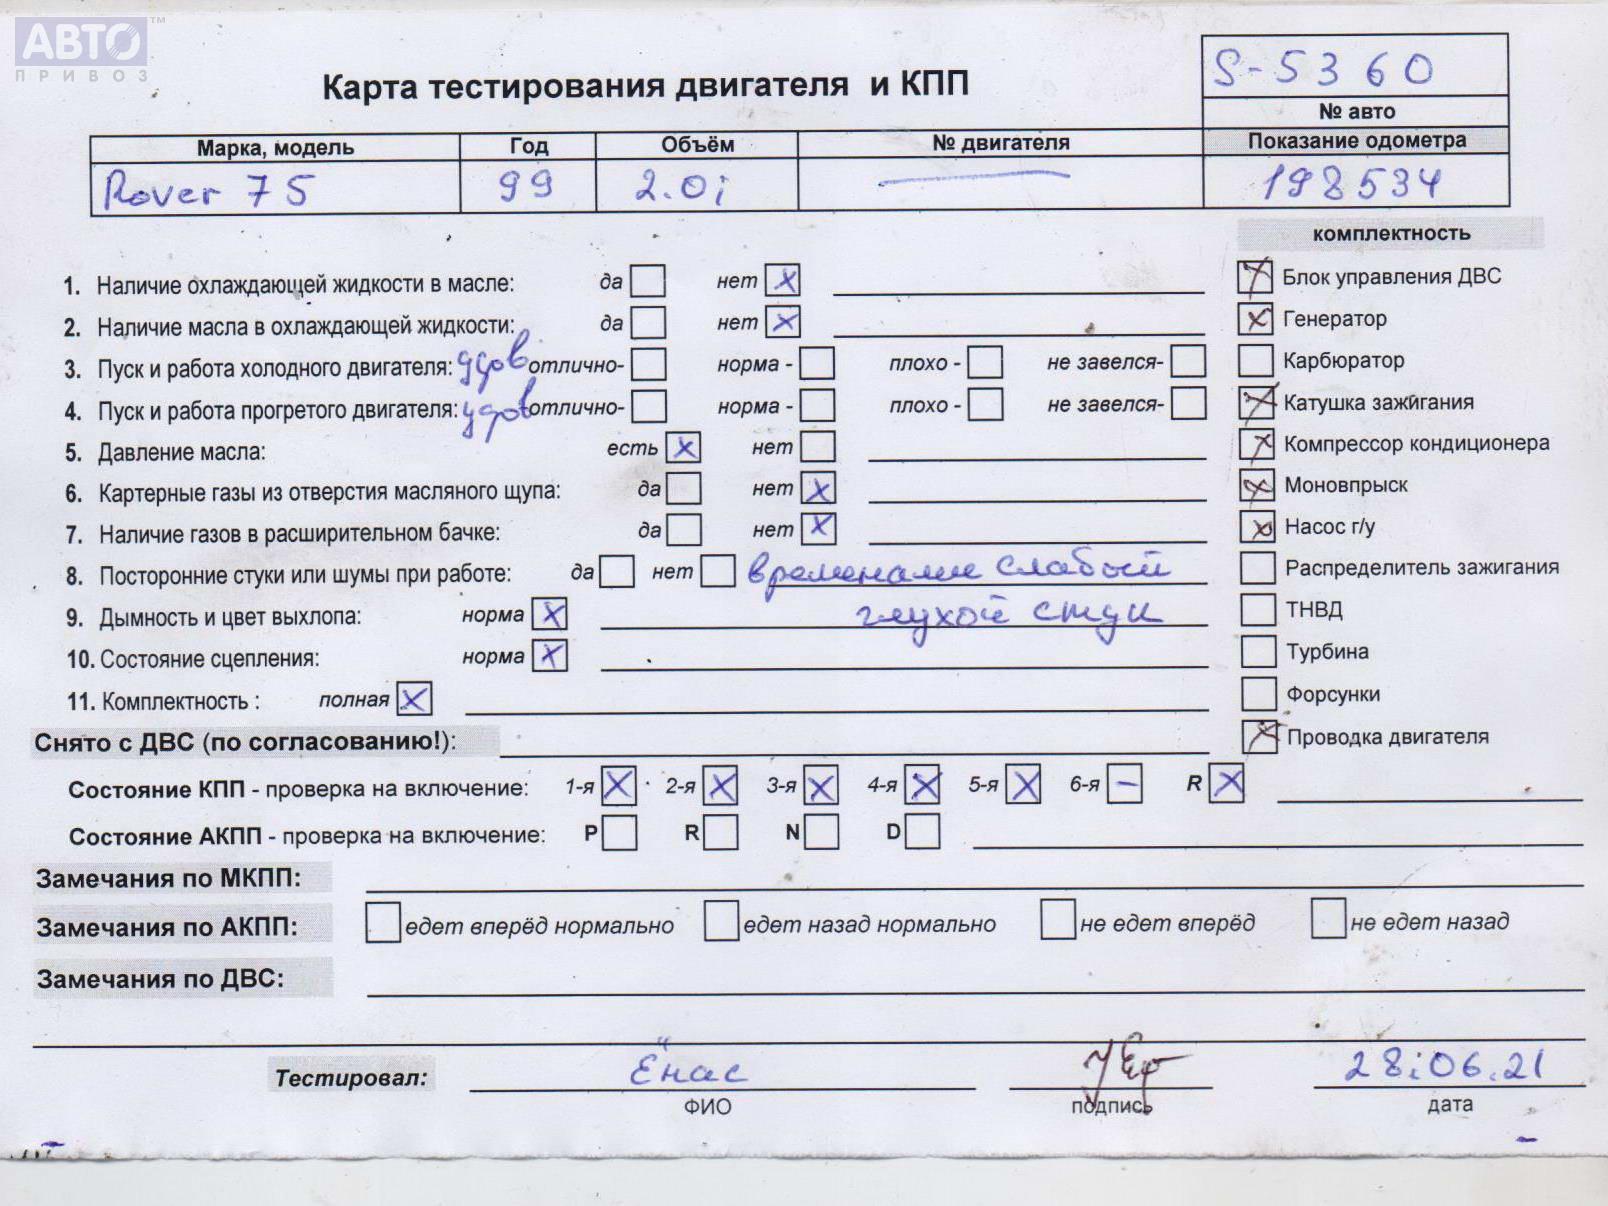 АВТО™
ПРИВОЗ
S-5360
Карта тестирования двигателя и КПП
№ авто
Марка, модель Год Объём № двигателя Показание одометра
Rover 75 99 2.0i — 198534
комплектность
1. Наличие охлаждающей жидкости в масле: да нет X
Блок управления ДВС
2. Наличие масла в охлаждающей жидкости: да нет X
Генератор
3. Пуск и работа холодного двигателя: удов отлично- норма - плохо - не завелся-
Карбюратор
4. Пуск и работа прогретого двигателя: удов отлично- норма - плохо - не завелся-
Катушка зажигания
5. Давление масла: есть X нет
Компрессор кондиционера
6. Картерные газы из отверстия масляного щупа: да нет X
Моновпрыск
7. Наличие газов в расширительном бачке: да нет X
Насос г/у
8. Посторонние стуки или шумы при работе: да нет временами слабый
Распределитель зажигания
9. Дымность и цвет выхлопа: норма X глухой стук
ТНВД
10. Состояние сцепления: норма X
Турбина
11. Комплектность : полная X
Форсунки
Снято с ДВС (по согласованию!):
Проводка двигателя
Состояние КПП - проверка на включение: 1-я X 2-я X 3-я X 4-я X 5-я X 6-я – R X
Состояние АКПП - проверка на включение: P R N D
Замечания по МКПП:
Замечания по АКПП: едет вперёд нормально едет назад нормально не едет вперёд не едет назад
Замечания по ДВС:
Тестировал: Ёнас 28.06.21
ФИО подпись дата